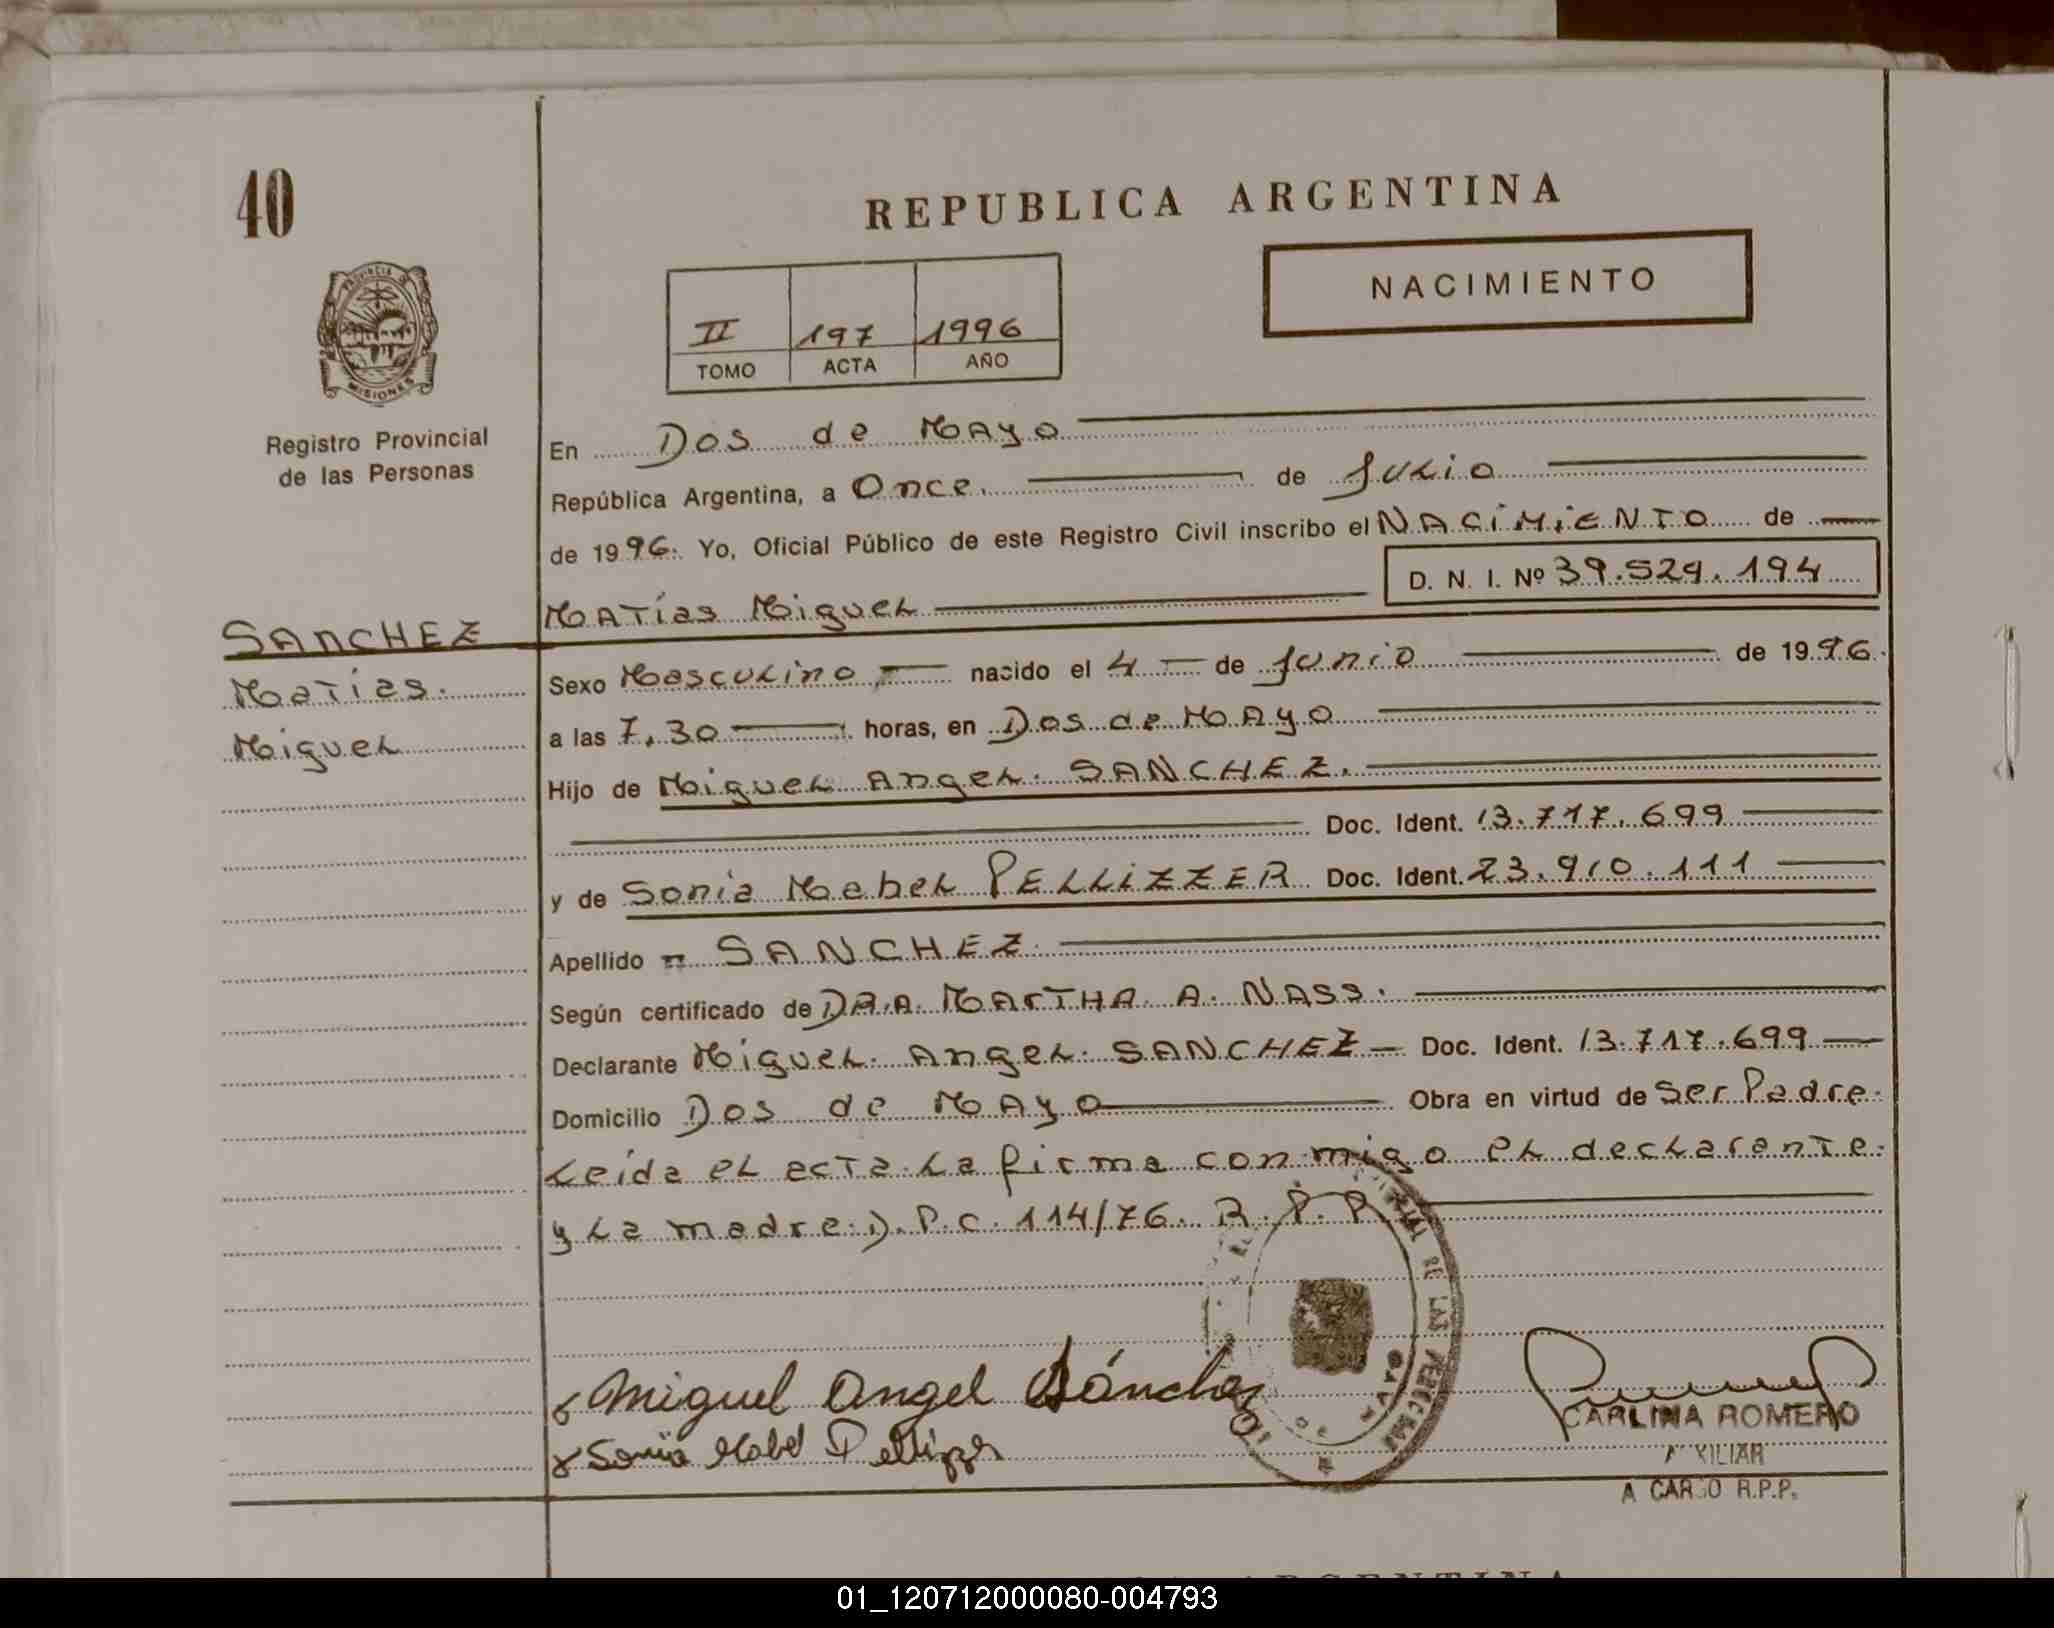 40
REPUBLICA ARGENTINA
NACIMIENTO
II 197 1996
TOMO ACTA AÑO
PROVINCIA DE
MISIONES
Registro Provincial
de las Personas
En Dos de Mayo
República Argentina, a Once. de Julio
de 1996. Yo, Oficial Público de este Registro Civil inscribo el NACIMIENTO de
D. N. I. Nº 39.529.194
Matías Miguel
SANCHEZ
Matías.
Miguel
Sexo Masculino nacido el 4 de Junio de 1996.
a las 7.30 horas, en Dos de Mayo
Hijo de Miguel Angel SANCHEZ.
Doc. Ident. 13.717.699
y de Sonia Mabel PELLIZZER Doc. Ident. 23.910.111
Apellido SANCHEZ
Según certificado de DRA. MArTHA A. NASS.
Declarante Miguel Angel SANCHEZ Doc. Ident. 13.717.699
Domicilio Dos de Mayo Obra en virtud de Ser Padre.
Leída el acta la firma conmigo el declarante
y la madre. D.P.C. 114/76. R.P.P.
DE LAS PERSONAS
Miguel Angel Sánchez
Sonia Mabel Pellizzer
CARLINA ROMERO
AUXILIAR
A CARGO R.P.P.
ARGENTINA
01_120712000080-004793